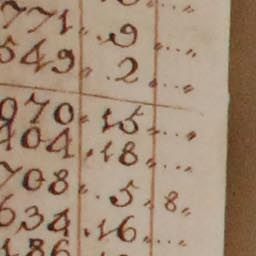 771, .9 „...„
549, .2 „...„
070. .15„...„
404 .18 „...„
708„ .5„ 8„
634 .16„...„